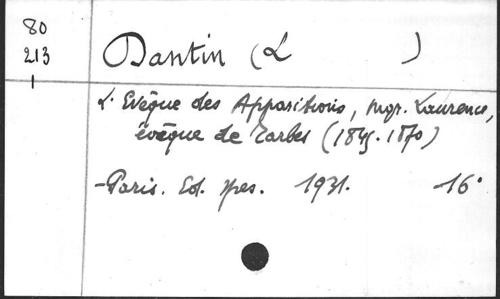 80
213
Dantin (L )
L'Evêque des Apparitions, Mgr. Laurence,
évêque de Tarbes (1845-1870)
- Paris. Ed. Spes. 1931. 16°